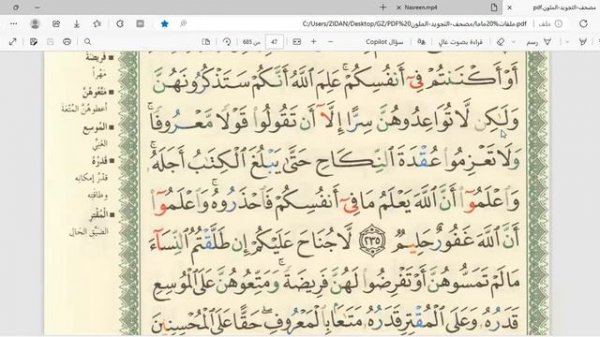 مصحف-التجويد-الملون.pdf
Navreen.mp4
ملف
C:/Users/ZIDAN/Desktop/GZ/PDF%20ملفات%20ماما/مصحف-التجويد-الملون.pdf
47 من 685
قراءة بصوتٍ عالٍ
سؤال Copilot
أَوْ أَكْنَنتُمْ فِىٓ أَنفُسِكُمْ ۚ عَلِمَ ٱللَّهُ أَنَّكُمْ سَتَذْكُرُونَهُنَّ
وَلَـٰكِن لَّا تُوَاعِدُوهُنَّ سِرًّا إِلَّآ أَن تَقُولُوا۟ قَوْلًا مَّعْرُوفًا ۚ
وَلَا تَعْزِمُوا۟ عُقْدَةَ ٱلنِّكَاحِ حَتَّىٰ يَبْلُغَ ٱلْكِتَـٰبُ أَجَلَهُۥ ۚ
وَٱعْلَمُوٓا۟ أَنَّ ٱللَّهَ يَعْلَمُ مَا فِىٓ أَنفُسِكُمْ فَٱحْذَرُوهُ ۚ وَٱعْلَمُوٓا۟
أَنَّ ٱللَّهَ غَفُورٌ حَلِيمٌ ٢٣٥ لَّا جُنَاحَ عَلَيْكُمْ إِن طَلَّقْتُمُ ٱلنِّسَآءَ
مَا لَمْ تَمَسُّوهُنَّ أَوْ تَفْرِضُوا۟ لَهُنَّ فَرِيضَةً ۚ وَمَتِّعُوهُنَّ عَلَى ٱلْمُوسِعِ
قَدَرُهُۥ وَعَلَى ٱلْمُقْتِرِ قَدَرُهُۥ مَتَـٰعًۢا بِٱلْمَعْرُوفِ ۖ حَقًّا عَلَى ٱلْمُحْسِنِينَ
فَرِيضَةً
مَهْراً
مَتِّعُوهُنَّ
أعطوهُنَّ المُتْعَةَ
الْمُوسِعِ
الغَنِيّ
قَدَرُهُ
قَدْر إمكانِه
وطاقتِه
الْمُقْتِرِ
الضيِّق الحَالِ